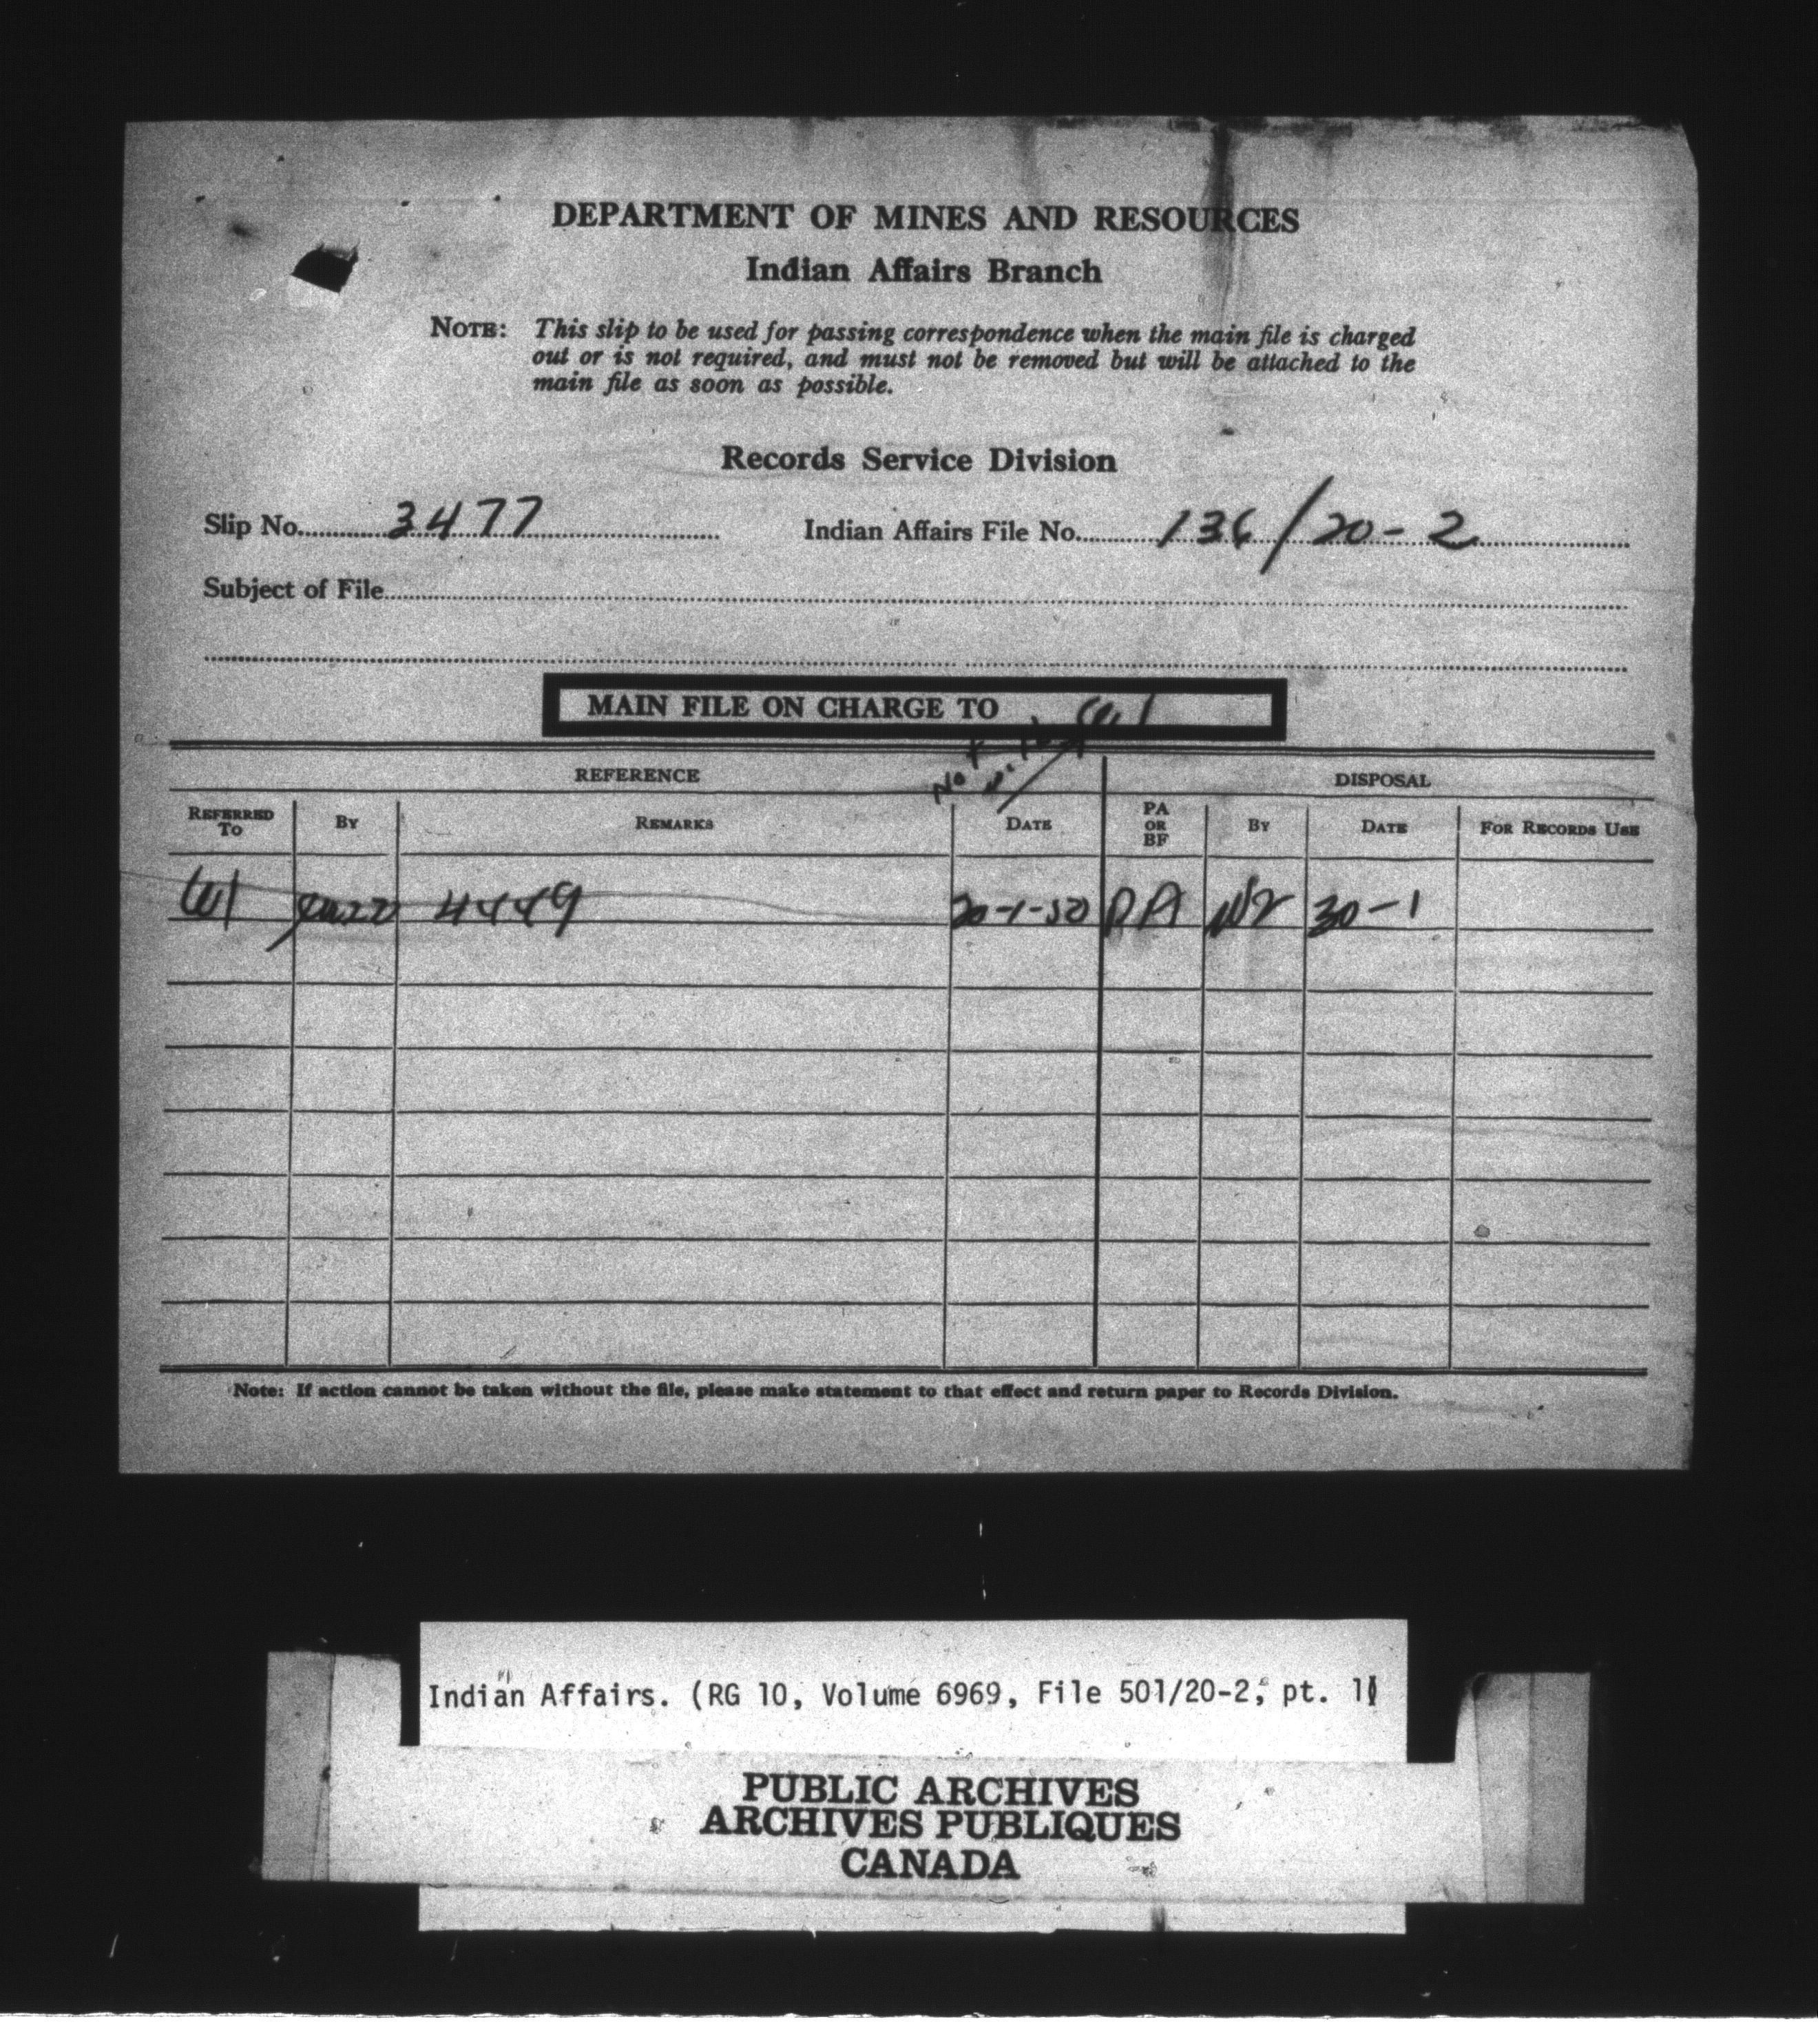 DEPARTMENT OF MINES AND RESOURCES
Indian Affairs Branch
NOTE: This slip to be used for passing correspondence when the main file is charged
out or is not required, and must not be removed but will be attached to the
main file as soon as possible.
Records Service Division
Slip No. 3477 Indian Affairs File No. 136/20-2
Subject of File
MAIN FILE ON CHARGE TO W1
Not
REFERENCE DISPOSAL
REFERRED TO BY REMARKS DATE PA OR BF BY DATE FOR RECORDS USE
W1 4449 20-1-50 PA 30-1
Note: If action cannot be taken without the file, please make statement to that effect and return paper to Records Division.
Indian Affairs. (RG 10, Volume 6969, File 501/20-2, pt. 1)
PUBLIC ARCHIVES
ARCHIVES PUBLIQUES
CANADA